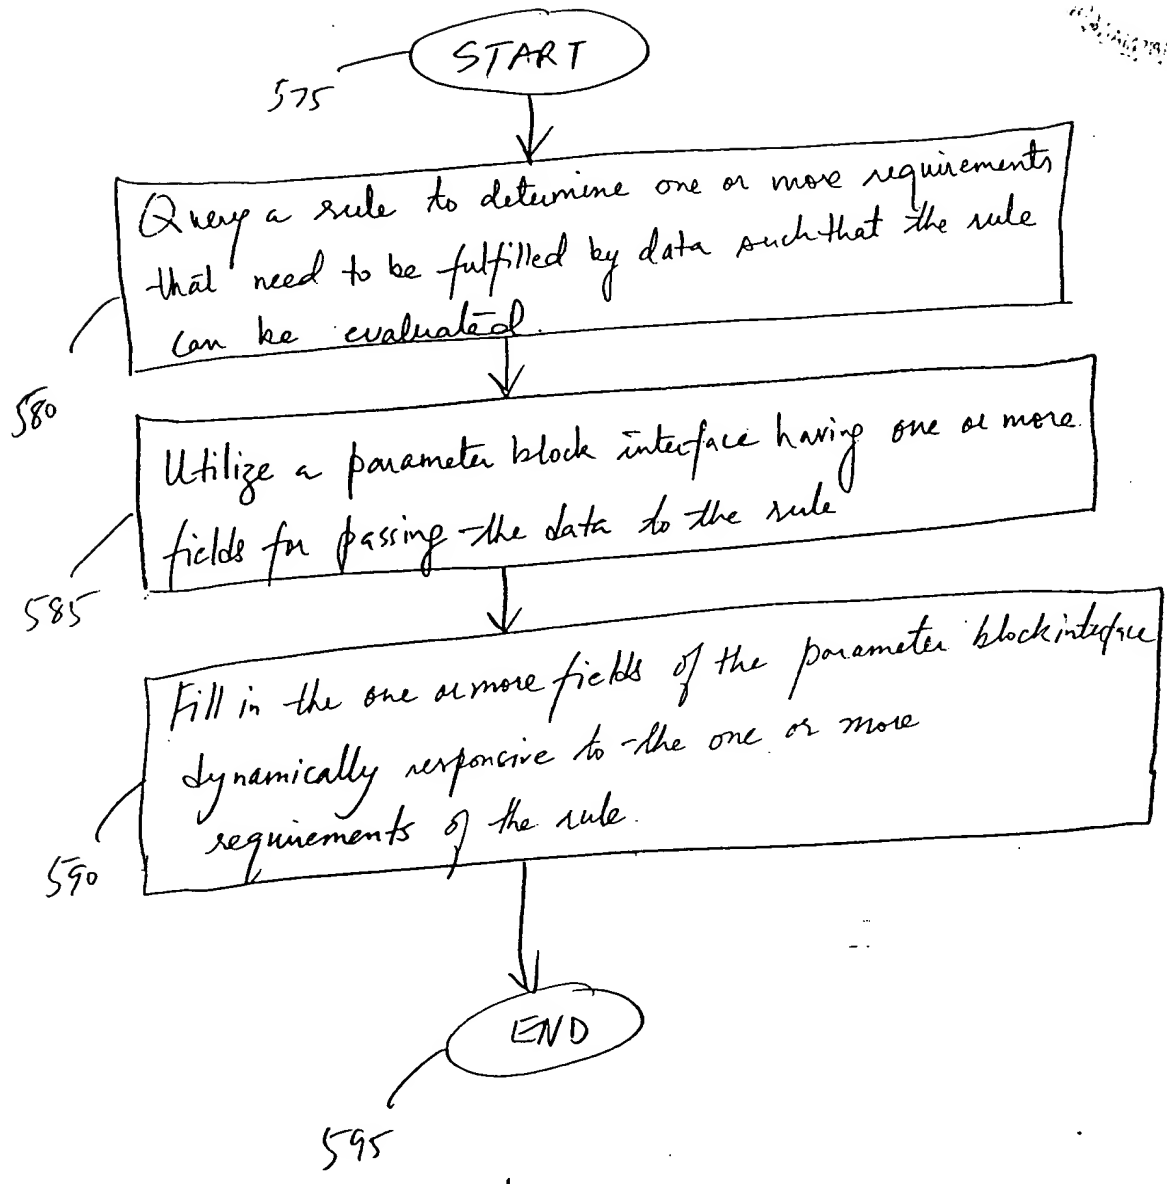 START
575
Query a rule to determine one or more requirements
that need to be fulfilled by data such that the rule
can be evaluated.
580
Utilize a parameter block interface having one or more
fields for passing the data to the rule
585
Fill in the one or more fields of the parameter block interface
dynamically responsive to the one or more
requirements of the rule.
590
END
595